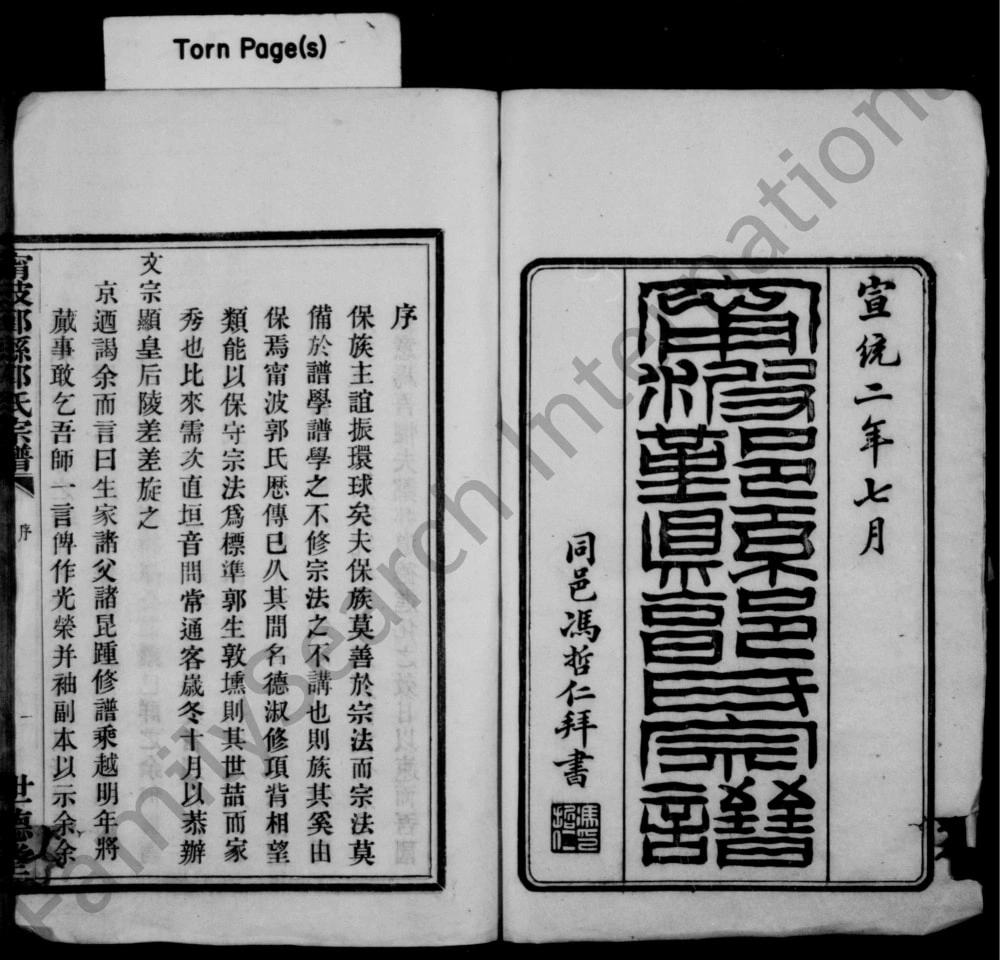 Torn Page(s)
宣統二年七月
甯波鄞縣郭氏宗譜
同邑馮哲仁拜書
馮印哲仁
序
保族主誼振環球矣夫保族莫善於宗法而宗法莫
備於譜學譜學之不修宗法之不講也則族其奚由
保焉甯波郭氏厯傳已久其間名德淑修項背相望
類能以保守宗法爲標準郭生敦壎則其世喆而家
秀也比來需次直垣音問常通客歲冬十月以恭辦
文宗顯皇后陵差差旋之
京迺謁余而言曰生家諸父諸昆踵修譜乘越明年將
蕆事敢乞吾師一言俾作光榮并袖副本以示余余
甯波鄞縣郭氏宗譜
序
一
世德堂
FamilySearch International